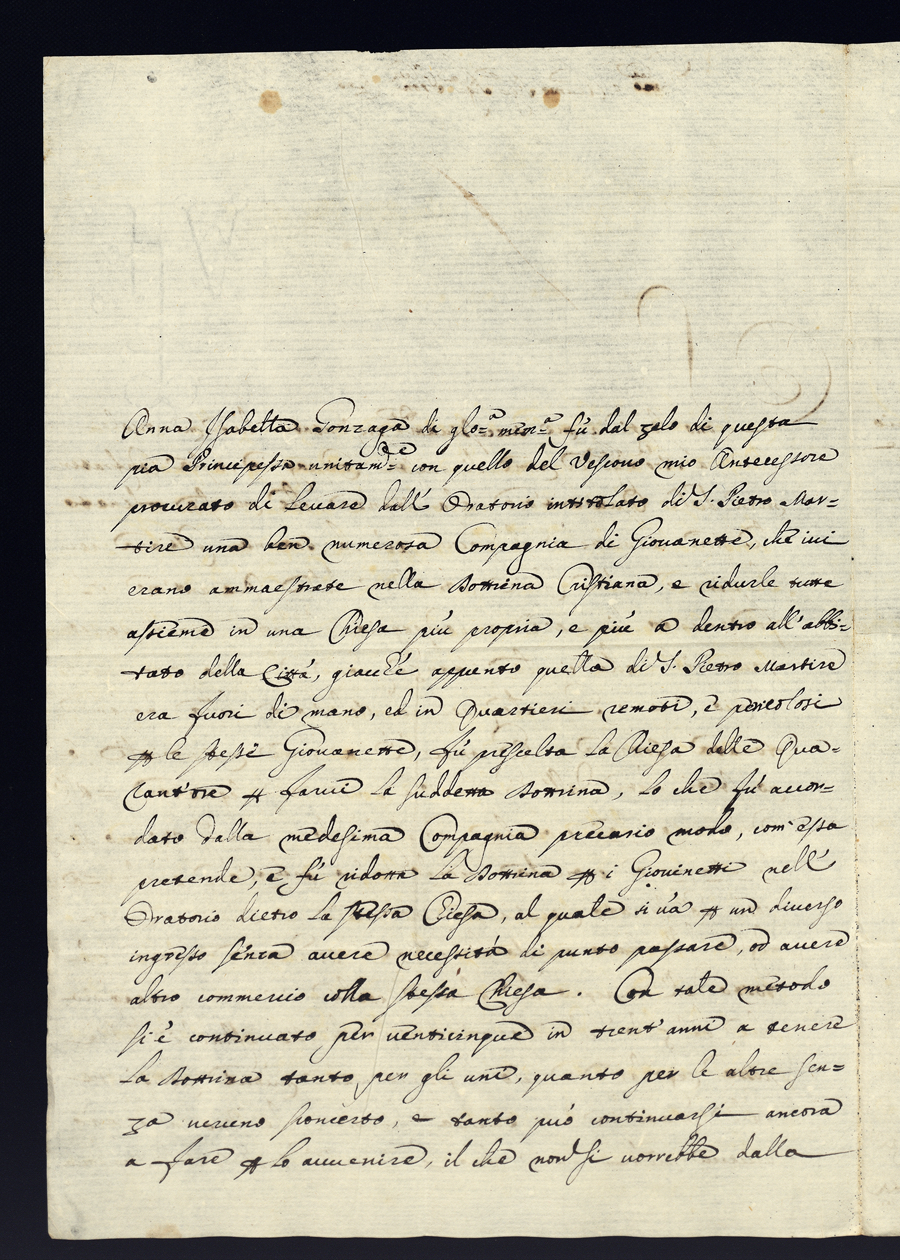 Anna Isabella Gonzaga di glo:ª mem:ª fù dal zelo di questa
pia Principessa unitam:te con quello del Vescovo mio Antecessore
procurato di levare dall' Oratorio intitolato di S. Pietro Mar=
tire una ben numerosa Compagnia di Giovanette, che ivi
erano ammaestrate nella Dottrina Cristiana, e ridurle tutte
assieme in una Chiesa più propria, e più a dentro all' abbi=
tato della Città, giacchè appunto quella di S. Pietro Martire
era fuori di mano, ed in Quartieri remoti, e pericolosi
p le stesse Giovanette, fù prescelta la Chiesa delle Qua=
rant'ore p farvi la suddetta Dottrina, lo che fù accor=
dato dalla medesima Compagnia precario modo, com' essa
pretende, e fù ridotta la Dottrina p i Giovinetti nell'
Oratorio dietro la stessa Chiesa, al quale si và p un diverso
ingresso senza avere necessità di punto passare, od avere
altro commercio colla stessa Chiesa. Con tale metodo
si è continuato per venticinque in trent' anni a tenere
la Dottrina tanto per gli uni, quanto per le altre sen=
za veruno sconcerto, e tanto può continuarsi ancora
a fare p lo avvenire, il che non si vorrebbe dalla